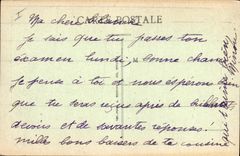 CARTE POSTALE
Ma chère
je sais que tu passes ton
examen lundi, bonne chance
je pense à toi et nous espérons
que tu seras reçue après de
devoirs et de savantes réponses.
mille bons baisers de ta cousine